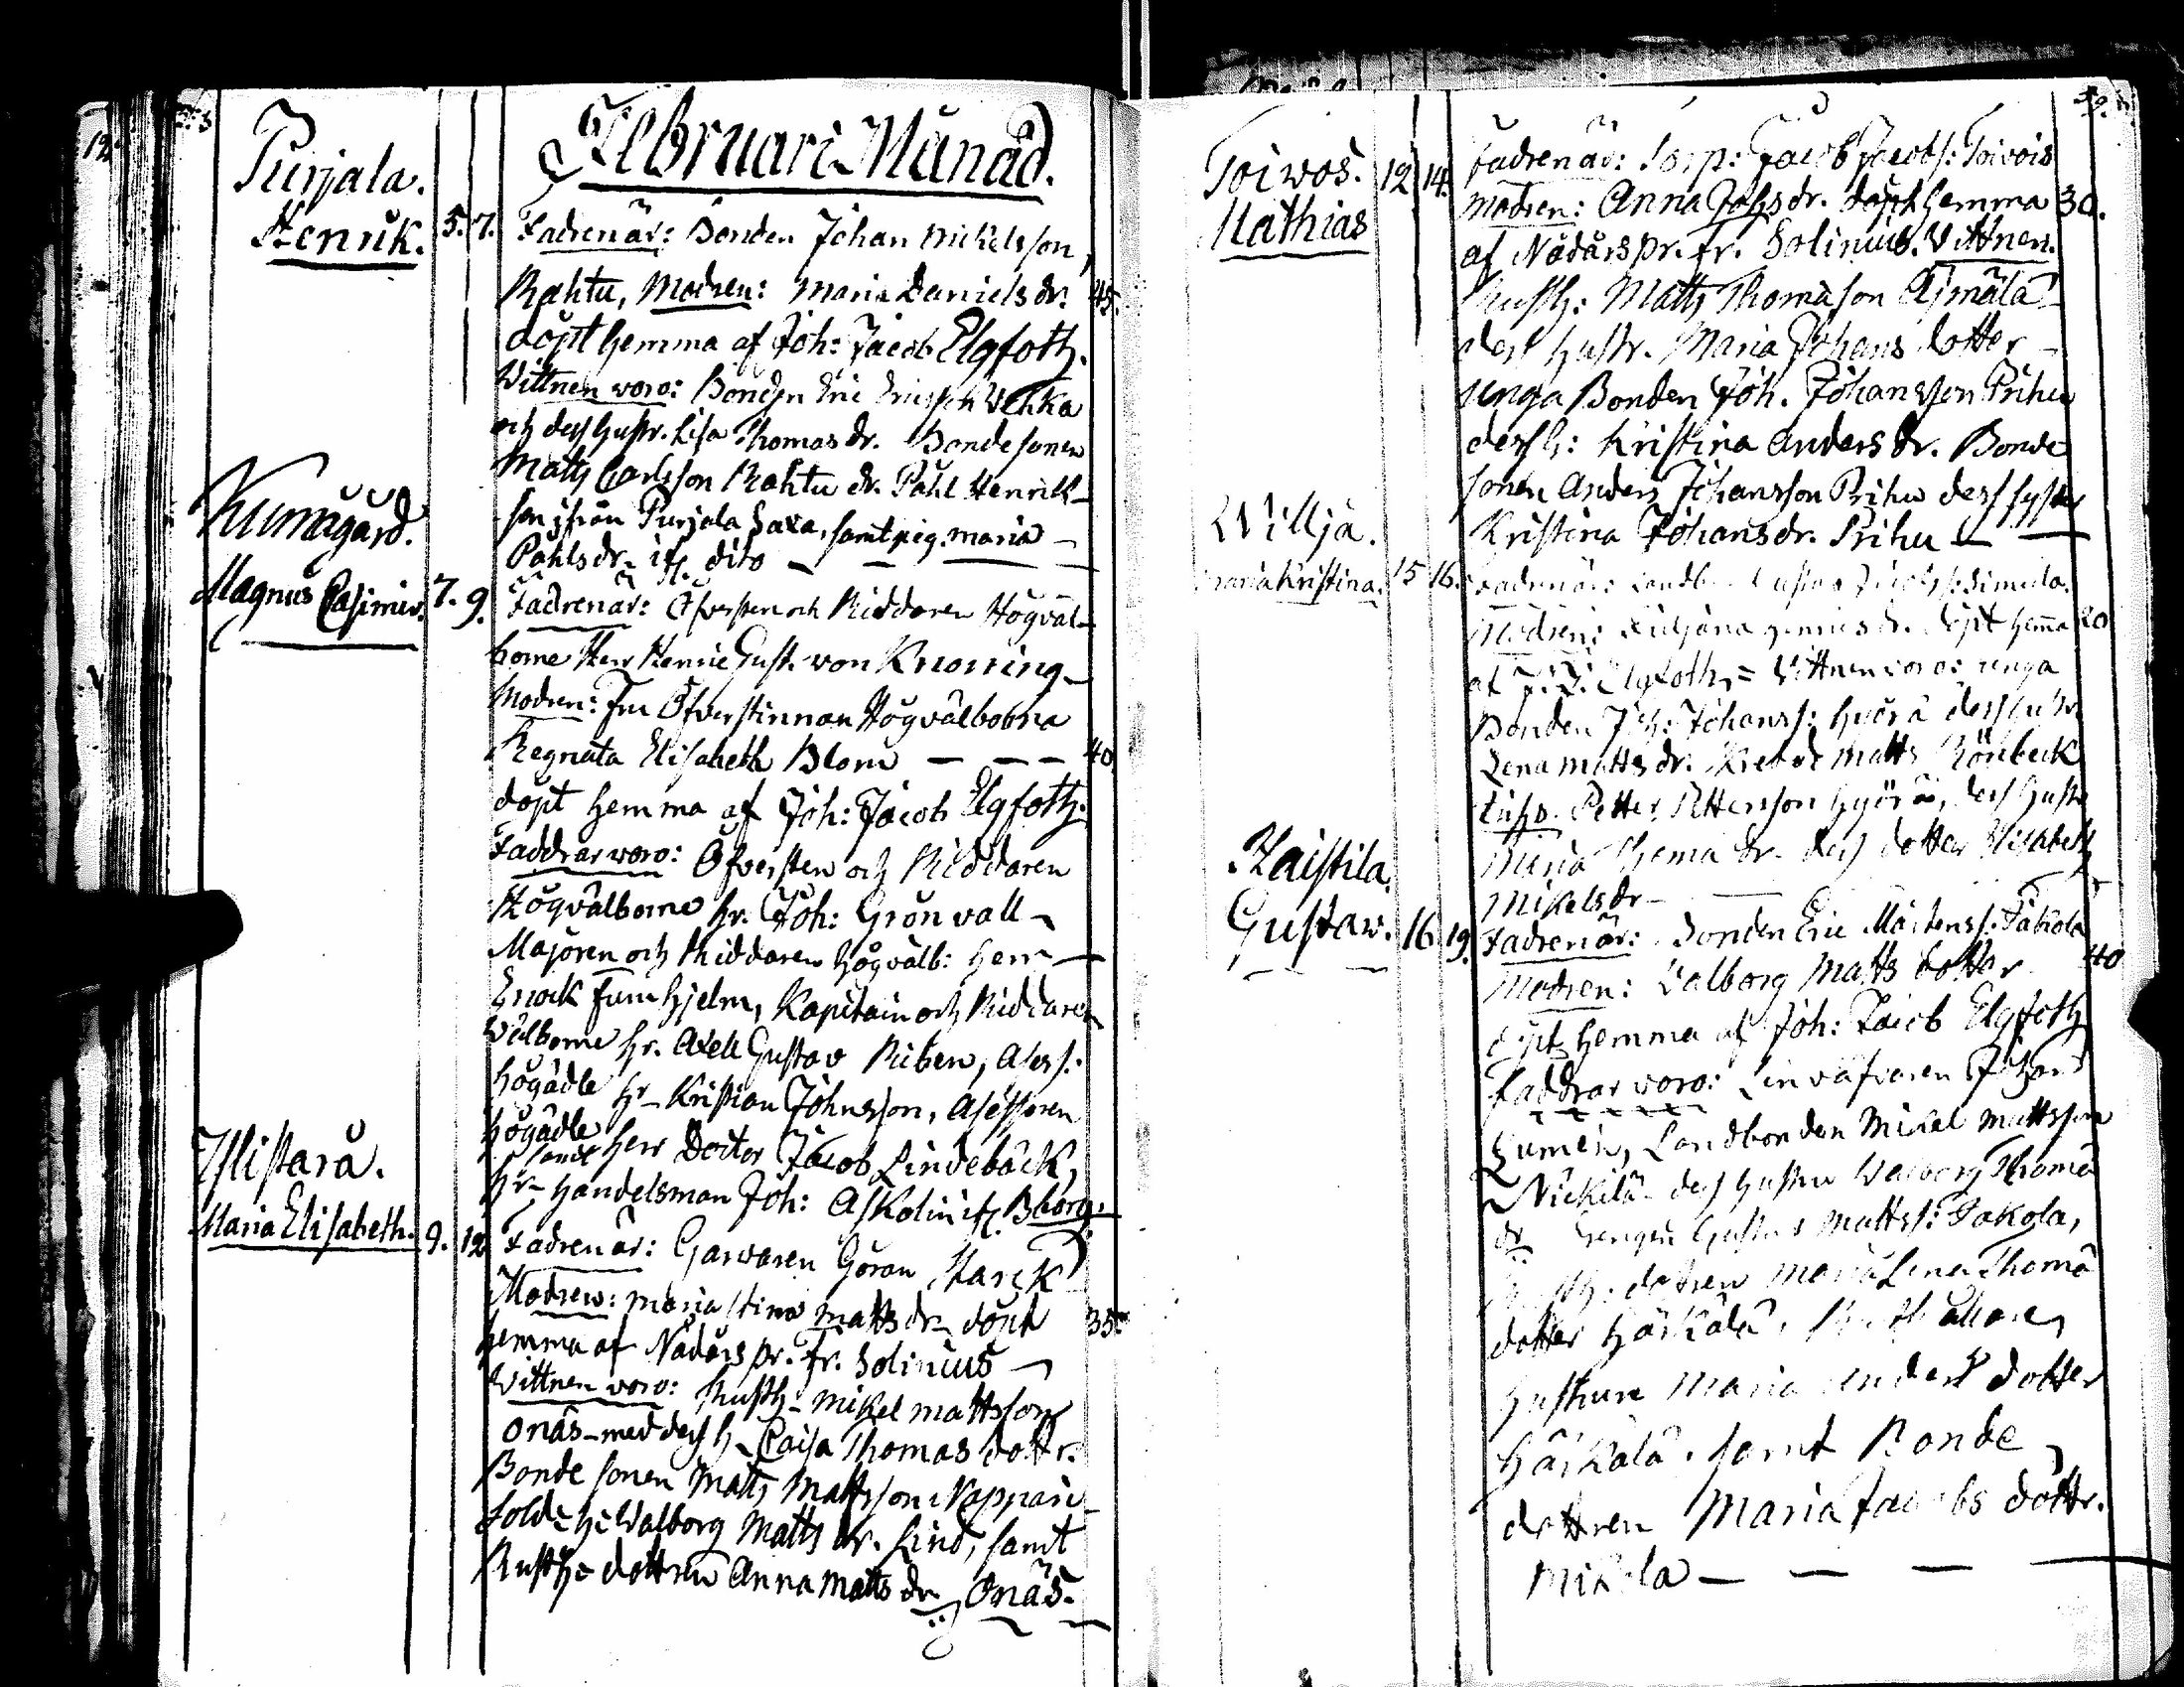 Februari Månad.
Purjala.
Henrik. 5. 7. Fadren är: Bonden Johan Mickelsson
Rahtu, Modren: Maria Daniels dr. 45.
döpt hemma af Joh: Jacob Elgfoth.
Vittnen voro: Bonden Eric Ericsson Uhka
och dess hustr. Lisa Thomas dr. Bonde sonen
Matts Carlsson Rahtu dr. Påhl Henrik-
son ifrån Purjala Saxa, samt pig. Maria
Påhls dr. if. dito
Kumogård.
Magnus Casimir. 7. 9. Fadren är: Öfversten och Riddaren Högväl-
borne Herr Henric Gust. von Knorring
Modren: Fru Öfverstinnan Högvälborna
Regnata Elisabeth Blom 40.
döpt hemma af Joh: Jacob Elgfoth.
Faddrar voro: Öfversten och Riddaren
Högvälborne hr. Joh: Grönvall
Majoren och Riddaren högvälb: herr
Enock Furuhjelm, Kapitain och Riddaren
Välborne hr. Axell Gustav Riben, Asess:
högädle hr Kristian Johnsson, Asessoren
högädle herr Doctor Jacob Lindebäck,
samt
hr handelsman Joh: Askolin if. Bborg.
Islistarå.
Maria Elisabeth. 9. 12 Fadren är: Garvaren Göran Starck
Modren: Maria Stina Matts dr. döpt 35.
hemma af Nådårs pr. Fr. Solinius
Vittnen voro: Rusth. Mikel Mattsson
Onäs med dess h. Caisa Thomas dottr.
Bonde sonen Matts Mattsson Nappari
Sold: h: Walborg Matts dr. Lind, samt
Rusth: dottren Anna Matts dr. Onäs.
Toivos. 12 14. Fadren är: Torp: Jacob Jacobs: Toivois
Mathias Modren: Anna Johs dr. döpt hemma 30.
af Nådårs pr. Fr. Solinius. Vittnen.
Rusth: Matts Thomasson Äjmälä
dess hustr. Maria Johans dotter
unga Bonden Joh. Johansson Prihu
dess h: Kristina Anders dr. Bonde
sonen Anders Johansson Prihu dess syster
Kristina Johans dr. Prihu
Willja.
Maria Kristina. 15 16. Fadren är: Landb. Gustav Jacobs: Simula.
Modren: döpt hemma 20
af J. J. Elgfoth = Vittnen voro: unga
Bonden Joh: Johanss: Hyörä dess hustr.
Lena Matts dr. Matts Rönbeck
Petter Pettersson Hyörä, dess hustr
Maria Thoma dr. dess dotter Elisabeth
Mikels dr
Kaistila.
Gustaw. 16 19. Fadren är: Bonden Eric Mårtens: Jakola 40
Modren: Valborg Matts dotter
döpt hemma af Joh: Jacob Elgfoth
Faddrar voro: Linväfvaren Johan
Lumen, Landbonden Mikel Mattsson
Nickilä dess hustru Walborg Thoma
dr Drengen Gustav Matts: Jakola,
dottren Maria Lena Thoma
dotter Härkälä,
hustrun Maria Anders dotter
Härkälä, samt Bonde
dottren Maria Jacobs dottr.
Mikola